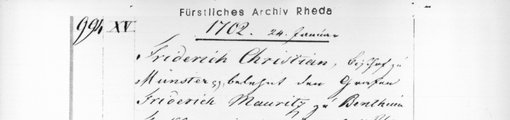 Fürstliches Archiv Rheda
994 XV 1702. 24. Januar
Friderich Christian, Bischof zu
Münster pp belehnt den Grafen
Friderich Mauritz zu Bentheim